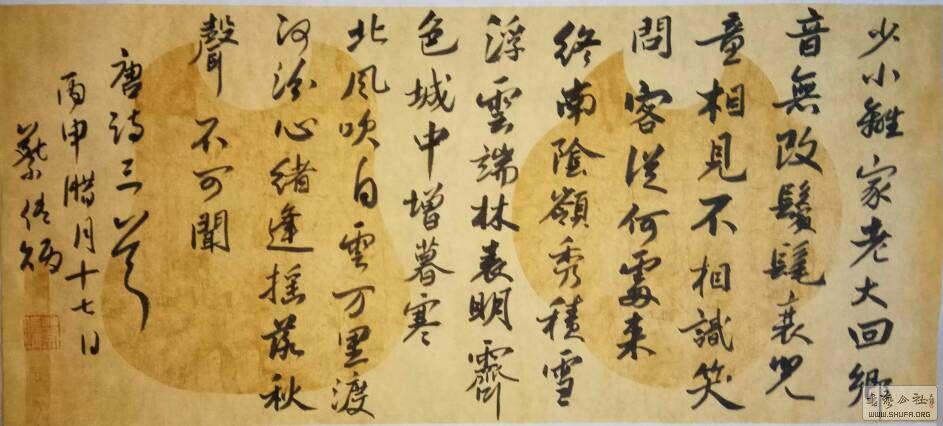 少小離家老大回鄉
音無改鬢髦衰兒
童相見不相識笑
問客從何處来
終南陰嶺秀積雪
浮雲端林表明霽
色城中增暮寒
北風吹白雲万里渡
河汾心緒逢摇落秋
聲不可聞
唐詩三首
丙申腊月十七日
WWW.SHUFA.ORG